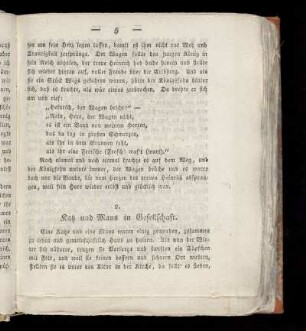 — 5 —
sen um sein Herz legen lassen, damit es ihm nicht vor Weh und
Traurigkeit zerspränge. Der Wagen sollte den jungen König in
sein Reich abholen, der treue Heinrich hob beide hinein und stellte
sich wieder hinten auf, voller Freude über die Erlösung. Und als
sie ein Stück Wegs gefahren waren, hörte der Königssohn hinter
sich, daß es krachte, als wär etwas zerbrochen. Da drehte er sich
um und rief:
„Heinrich, der Wagen bricht!“ —
„Nein, Herr, der Wagen nicht,
es ist ein Band von meinem Herzen,
das da lag in großen Schmerzen,
als ihr in dem Brunnen saßt,
als ihr eine Fretsche (Frosch) wast (wart).“
Noch einmal und noch einmal krachte es auf dem Weg, und
der Königssohn meinte immer, der Wagen bräche und es waren
doch nur die Bande, die vom Herzen des treuen Heinrich abspran-
gen, weil sein Herr wieder erlöst und glücklich war.
2.
Katz und Maus in Gesellschaft.
Eine Katze und eine Maus waren einig geworden, zusammen
zu leben und gemeinschaftlich Haus zu halten. Als nun der Win-
ter sich näherte, trugen sie Vorsorge und kauften ein Töpfchen
mit Fett, und weil sie keinen bessern und sichrern Ort wußten,
stellten sie es unter den Altar in der Kirche, da sollt' es stehen,